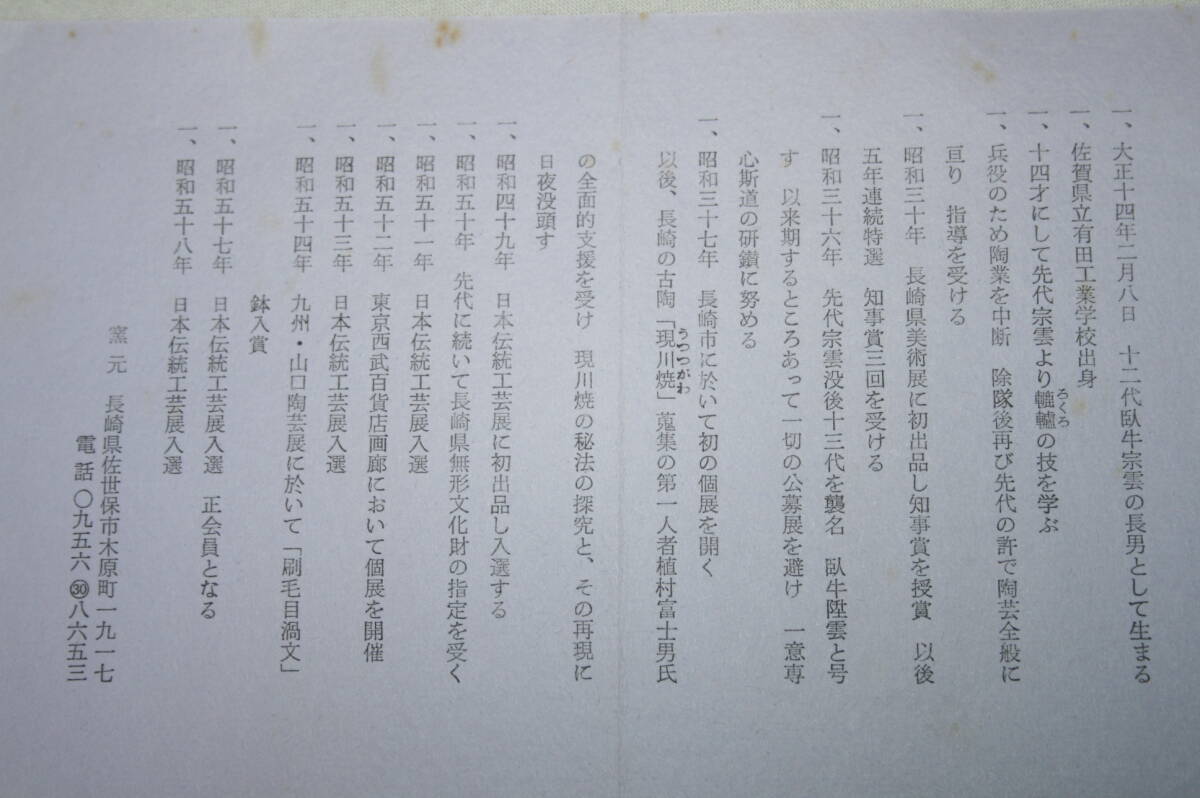 一、大正十四年二月八日　十二代臥牛宗雲の長男として生まる
一、佐賀県立有田工業学校出身
一、十四才にして先代宗雲より轆轤の技を学ぶ
ろくろ
一、兵役のため陶業を中断　除隊後再び先代の許で陶芸全般に
亘り　指導を受ける
一、昭和三十年　長崎県美術展に初出品し知事賞を授賞　以後
五年連続特選　知事賞三回を受ける
一、昭和三十六年　先代宗雲没後十三代を襲名　臥牛陞雲と号
す　以来期するところあって一切の公募展を避け　一意専
心斯道の研鑽に努める
一、昭和三十七年　長崎市に於いて初の個展を開く
以後、長崎の古陶「現川焼」蒐集の第一人者植村富士男氏
うつつがわ
の全面的支援を受け　現川焼の秘法の探究と、その再現に
日夜没頭す
一、昭和四十九年　日本伝統工芸展に初出品し入選する
一、昭和五十年　先代に続いて長崎県無形文化財の指定を受く
一、昭和五十一年　日本伝統工芸展入選
一、昭和五十二年　東京西武百貨店画廊において個展を開催
一、昭和五十三年　日本伝統工芸展入選
一、昭和五十四年　九州・山口陶芸展に於いて「刷毛目渦文」
鉢入賞
一、昭和五十七年　日本伝統工芸展入選　正会員となる
一、昭和五十八年　日本伝統工芸展入選
窯元　長崎県佐世保市木原町一九一七
電話〇九五六㉚八六五三